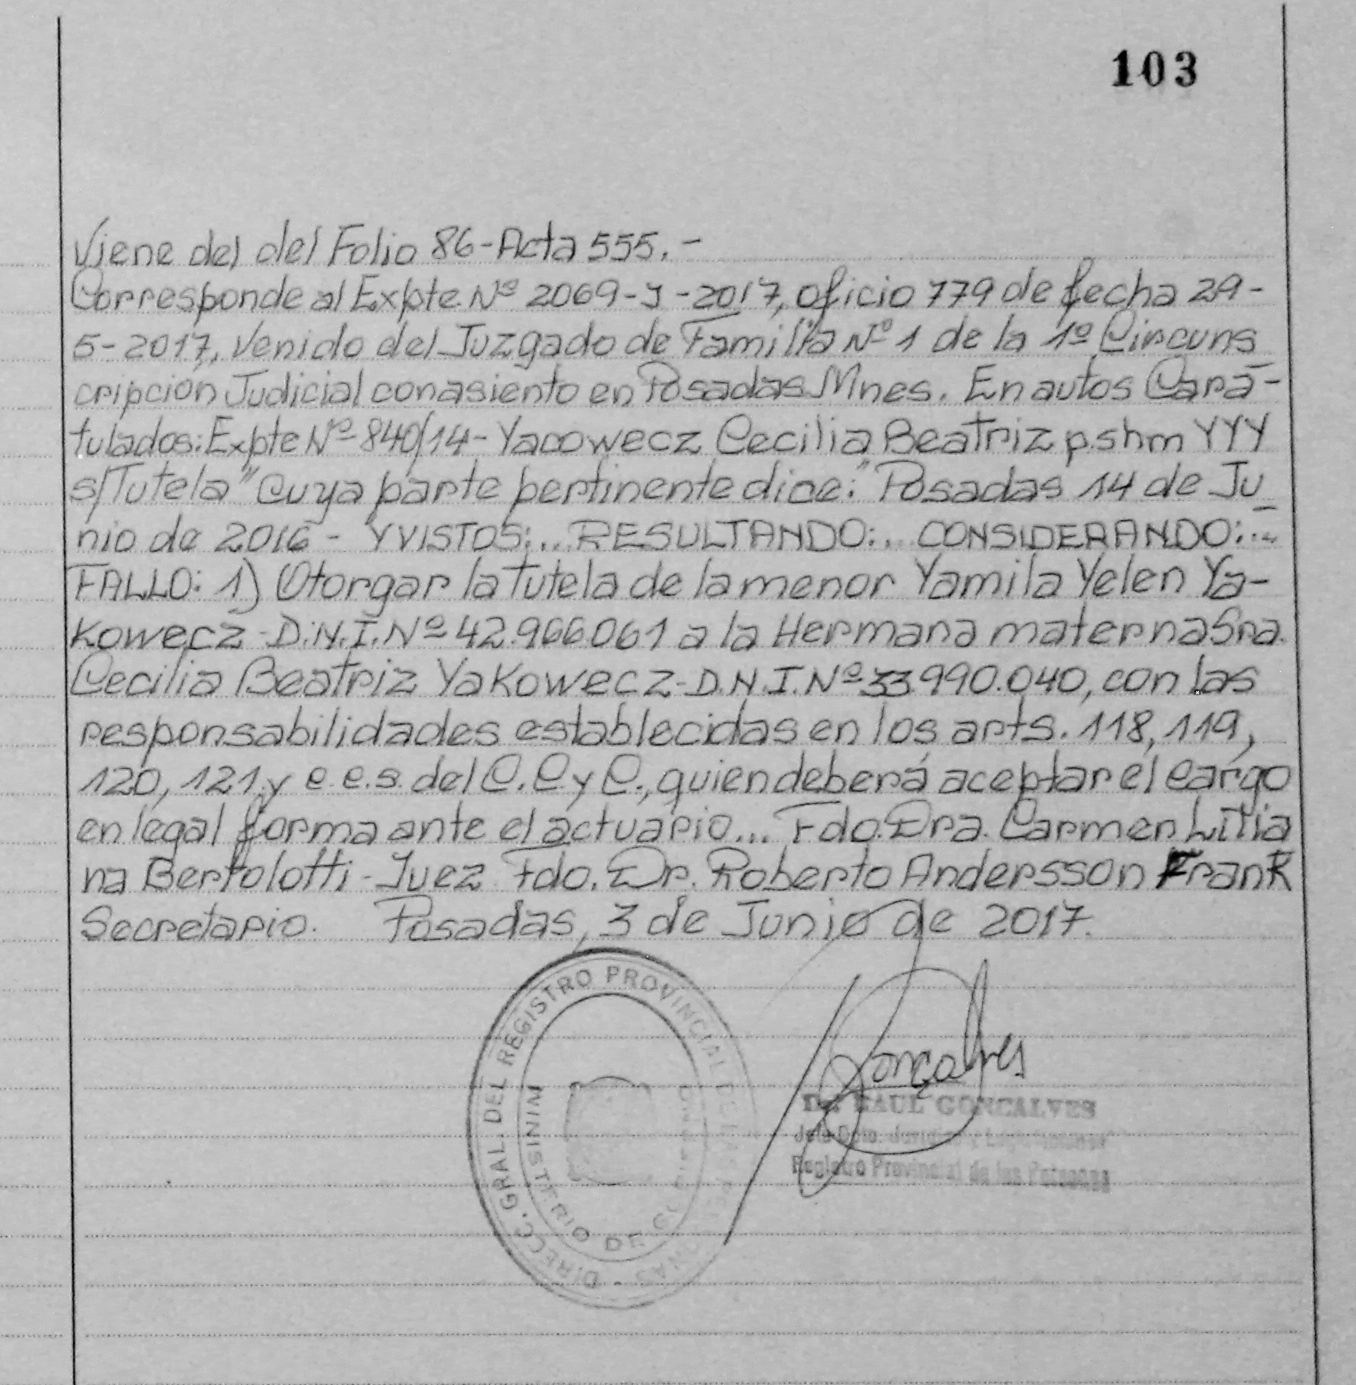 103
Viene del del Folio 86-Acta 555.-
Corresponde al Expte. Nº 2069-Y-2017, oficio 779 de fecha 29-
5-2017, Venido del Juzgado de Familia Nº 1 de la 1º Circuns
cripcion Judicial con asiento en Posadas Mnes. En autos Cará-
tulados: Expte Nº-840/14- Yacowecz Cecilia Beatriz p.shm YYY
s/Tutela" Cuya parte pertinente dice: "Posadas 14 de Ju
nio de 2016 - Y VISTOS:... RESULTANDO:... CONSIDERANDO:...-
FALLO: 1) Otorgar la Tutela de la menor Yamila Yelen Ya-
Kowecz-D.N.I. Nº 42.966.061 a la Hermana materna Sra.
Cecilia Beatriz YaKowecz-D.N.I. Nº 33.990.040, con las
responsabilidades establecidas en los arts. 118, 119,
120, 121 y c.c.s. del C.C y C., quien deberá aceptar el cargo
en legal forma ante el actuario... Fdo. Dra. Carmen Litia
na Bertolotti-Juez Fdo. Dr. Roberto Andersson Frank
Secretario. Posadas, 3 de Junio de 2017.
DIRECC. GRAL. DEL REGISTRO PROVINCIAL DE LAS PERSONAS
MINISTERIO DE GOBIERNO
Gonçalves
Dr. RAUL GONCALVES
Jefe Dpto.
Registro Provincial de las Personas